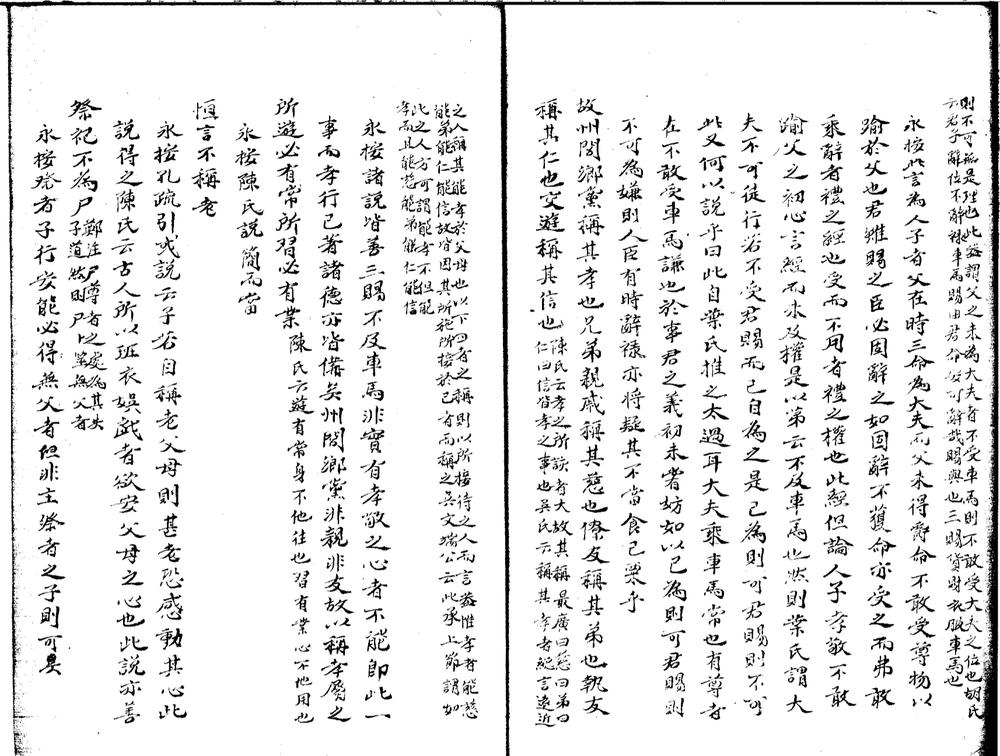 則不可孤是理也此蓋謂父之未為大夫者不受車馬則不敢受大夫之位也胡氏
云君子辭位不辭祿車馬賜由君命安可辭哉賜與也三賜貨財衣服車馬也
永按此言為人子者父在時三命為大夫而父未得爵命不敢受尊物以
踰於父也君雖賜之臣必固辭之如固辭不獲命亦受之而弗敢
乘辭者禮之經也受而不用者禮之權也此經但論人子孝敬不敢
踰父之初心言經而未及權是以第云不及車馬也然則葉氏謂大
夫不可徒行若不受君賜而已自為之是己為則可君賜則不可
此又何以說乎曰此自葉氏推之太過耳大夫乘車馬常也有尊者
在不敢受車馬謙也於事君之義初未嘗妨如以己為則可君賜則
不可為嫌則人臣有時辭祿亦將疑其不當食己粟乎
故州閭鄉黨稱其孝也兄弟親戚稱其慈也僚友稱其弟也執友
稱其仁也交遊稱其信也
陳氏云孝之所該者大故其稱最廣曰慈曰弟曰
仁曰信皆孝之事也吳氏云稱其孝者總言遠近
之人稱其能孝於父母也以下四者之稱則以所接待之人而言蓋惟孝者能慈
能弟能仁能信故皆因其所施所接於己者而稱之吳文端公云此承上節謂如
此之人方可謂能孝不但能
孝而且能慈能弟能仁能信
永按諸說皆善三賜不及車馬非實有孝敬之心者不能即此一
事而孝行已著諸德亦皆備矣州閭鄉黨非親非友故以稱孝屬之
所遊必有常所習必有業
陳氏云遊有常身不他往也習有業心不他用也
永按陳氏說簡而當
恒言不稱老
永按孔疏引或說云子若自稱老父母則甚老恐感動其心此
說得之陳氏云古人所以班衣娛戲者欲安父母之心也此說亦善
祭祀不為尸
鄭注尸尊者之處為其失
子道然則尸卜筮無父者
永按祭者子行安能必得無父者但非主祭者之子則可矣